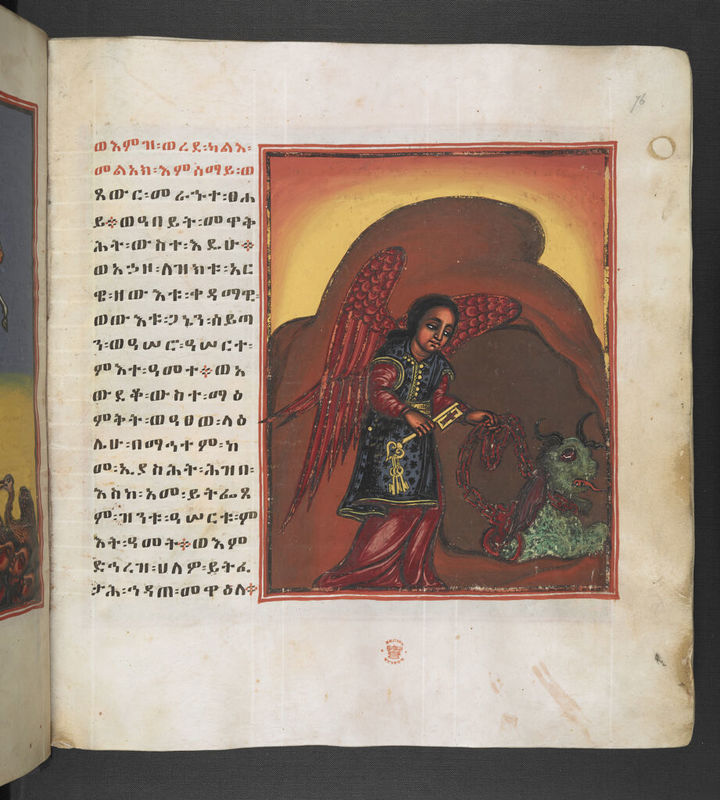 76
ወእምዝ፡ወረደ፡ካልእ፡
መልአክ፡እምሰማይ፡ወ
ጸውር፡መራኁተ፡ፀሐ
ይ፨ወዓበይት፡መዋቅ
ሕት፡ውስተ፡እዴሁ፨
ወአኃዞ፡ለዝክቱ፡አር
ዌ፡ዘውእቱ፡ቀዳማዊ፡
ወውእቱ፡ጋኔን፡ሰይጣ
ን፡ወዓሠሮ፡ዓሠርተ፡
ምእተ፡ዓመተ፨ወአ
ውደቆ፡ውስተ፡ማዕ
ምቅት፡ወዓፀወ፡ላዕ
ሌሁ፡በማኅተም፡ከ
መ፡ኢያስሕት፡ሕዝበ፡
እስከ፡አመ፡ይትፌጸ
ም፡ዝንቱ፡ዓሠርቱ፡ም
እት፡ዓመት፨ወእም
ድኅረዝ፡ሀለዎ፡ይትፈ
ታሕ፡ኅዳጠ፡መዋዕለ፨